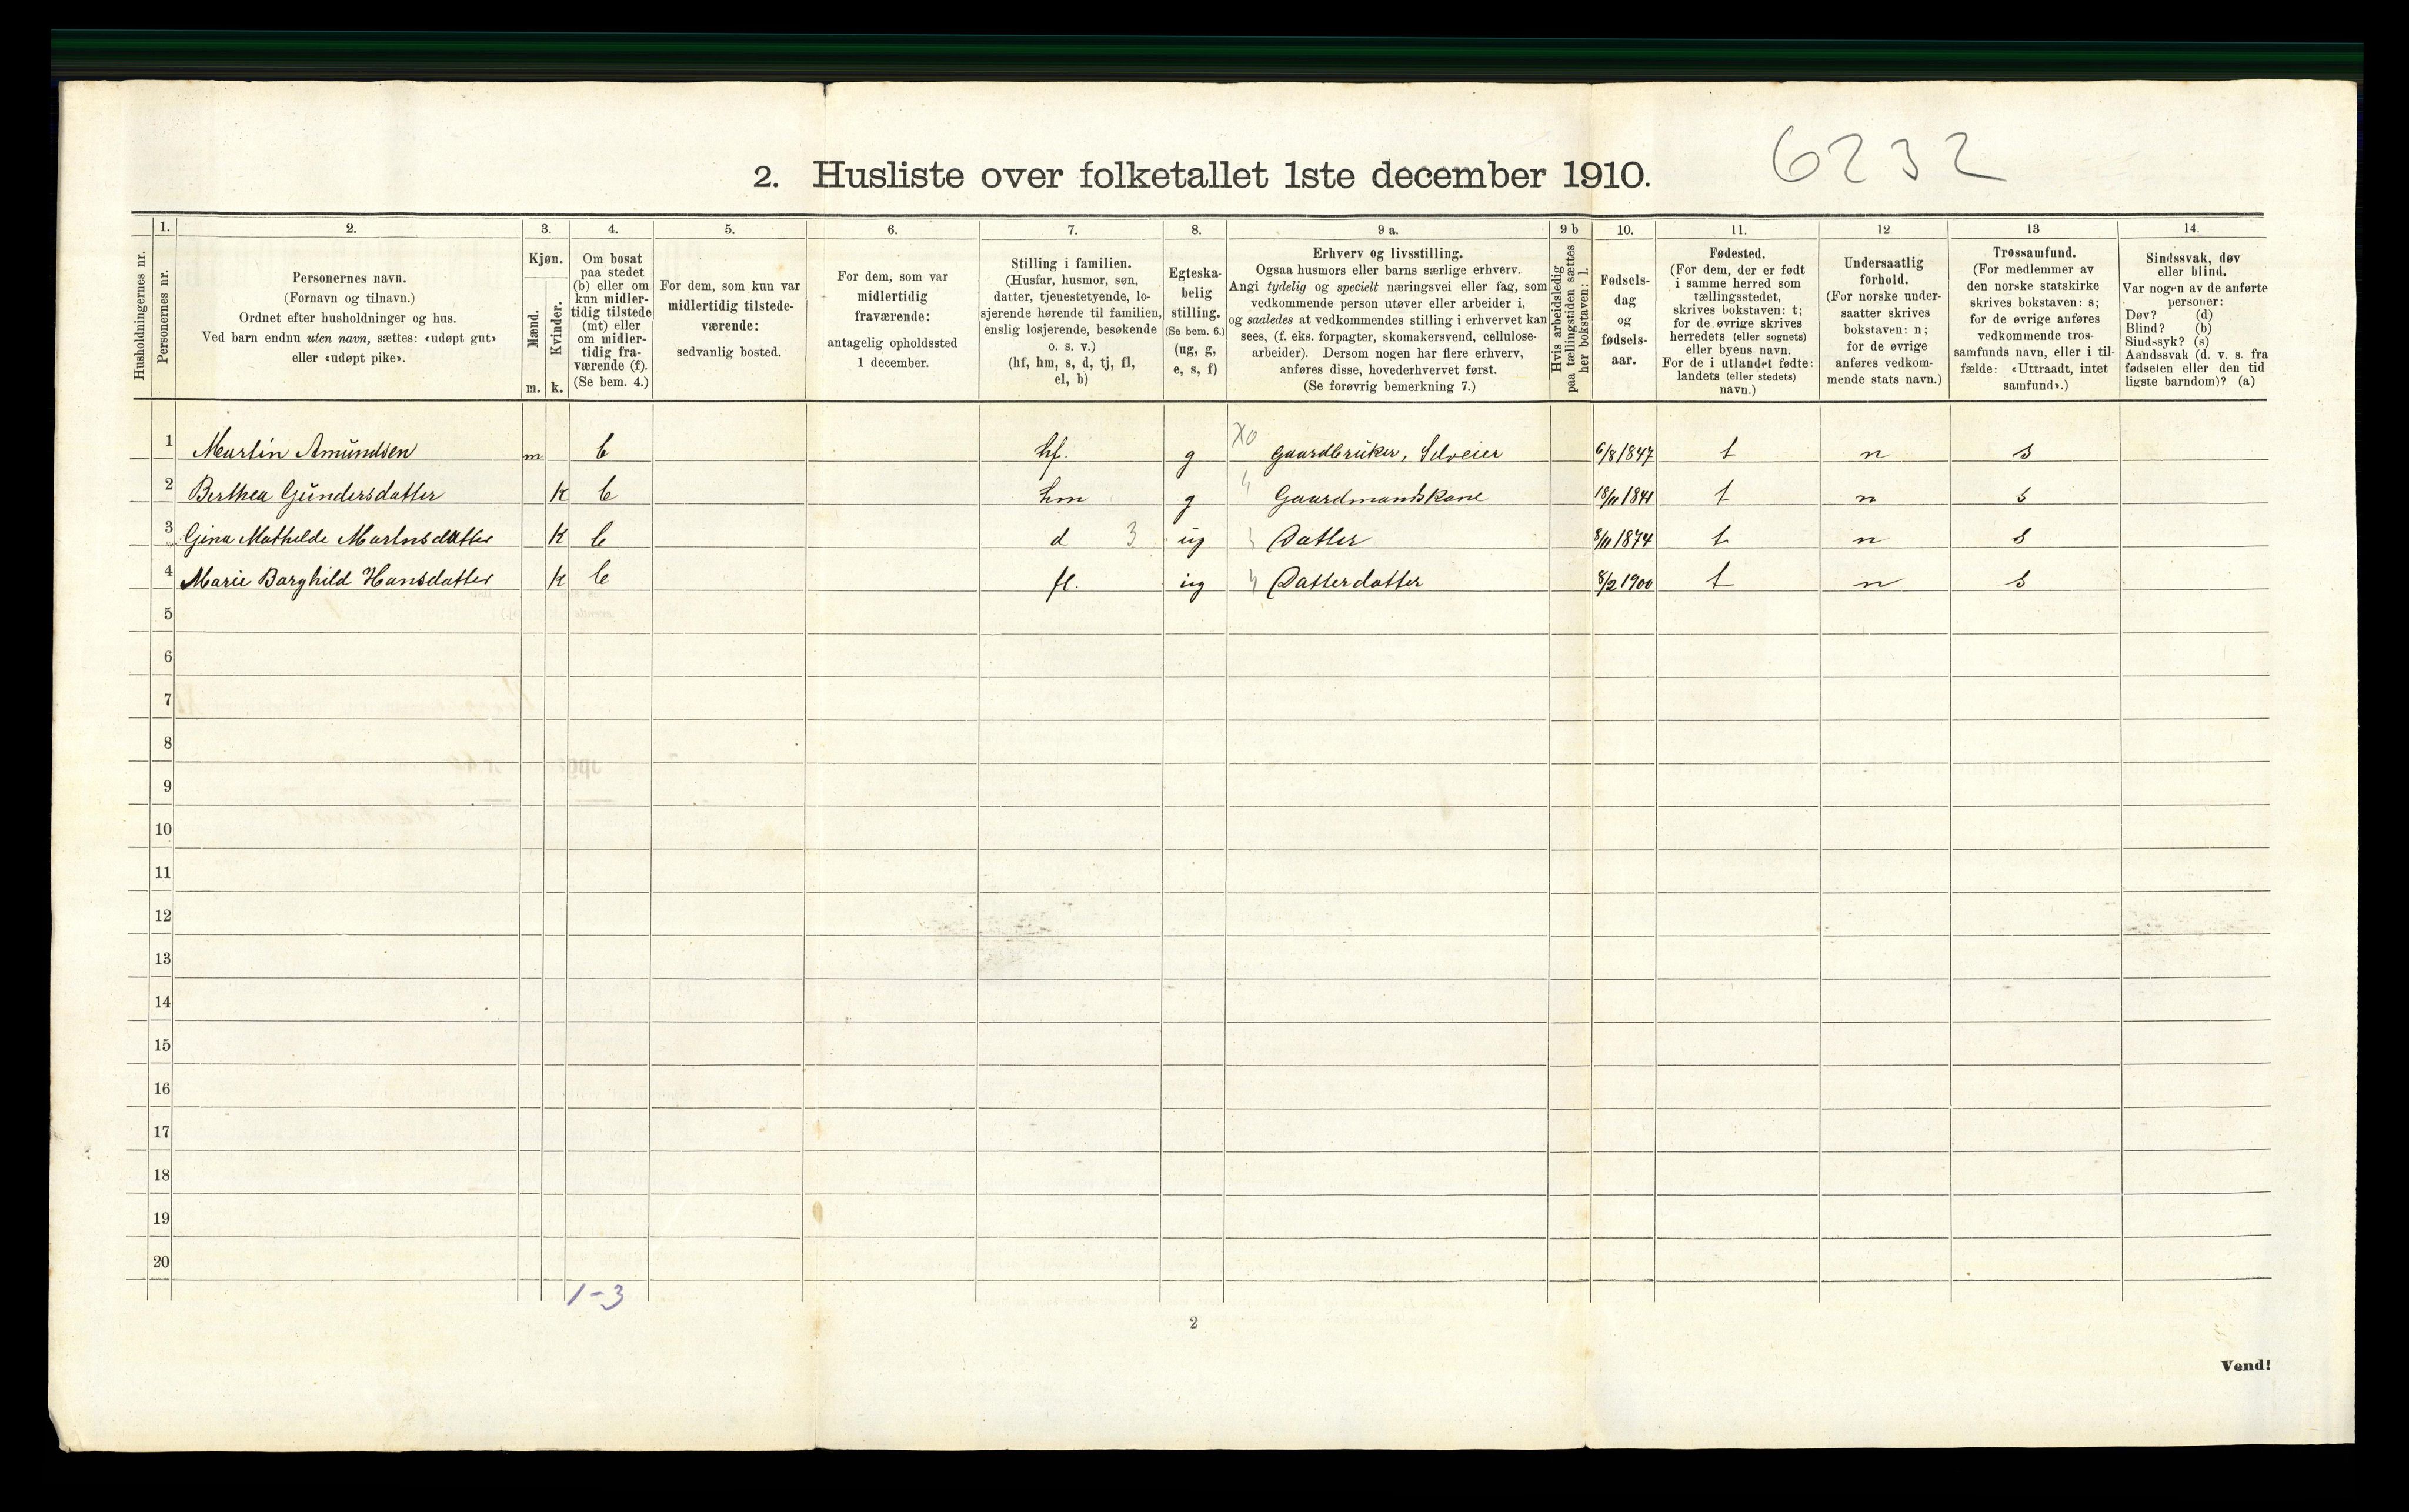 6232
2. Husliste over folketallet 1ste december 1910.
Husholdningernes nr.
1.
Personernes nr.
2.
Personernes navn.
(Fornavn og tilnavn.)
Ordnet efter husholdninger og hus.
Ved barn endnu uten navn, sættes: «udøpt gut»
eller «udøpt pike».
3.
Kjøn.
Mænd.
m.
Kvinder.
k.
4.
Om bosat
paa stedet
(b) eller om
kun midler-
tidig tilstede
(mt) eller
om midler-
tidig fra-
værende (f).
(Se bem. 4.)
5.
For dem, som kun var
midlertidig tilstede-
værende:
sedvanlig bosted.
6.
For dem, som var
midlertidig
fraværende:
antagelig opholdssted
1 december.
7.
Stilling i familien.
(Husfar, husmor, søn,
datter, tjenestetyende, lo-
sjerende hørende til familien,
enslig losjerende, besøkende
o. s. v.)
(hf, hm, s, d, tj, fl,
el, b)
8.
Egteska-
belig
stilling.
(Se bem. 6.)
(ug, g,
e, s, f)
9 a.
Erhverv og livsstilling.
Ogsaa husmors eller barns særlige erhverv.
Angi tydelig og specielt næringsvei eller fag, som
vedkommende person utøver eller arbeider i,
og saaledes at vedkommendes stilling i erhvervet kan
sees, (f. eks. forpagter, skomakersvend, cellulose-
arbeider). Dersom nogen har flere erhverv,
anføres disse, hovederhvervet først.
(Se forøvrig bemerkning 7.)
9 b
Hvis arbeidsledig
paa tællingstiden sættes
her bokstaven: l.
10.
Fødsels-
dag
og
fødsels-
aar.
11.
Fødested.
(For dem, der er født
i samme herred som
tællingsstedet,
skrives bokstaven: t;
for de øvrige skrives
herredets (eller sognets)
eller byens navn.
For de i utlandet fødte:
landets (eller stedets)
navn.)
12
Undersaatlig
forhold.
(For norske under-
saatter skrives
bokstaven: n;
for de øvrige
anføres vedkom-
mende stats navn.)
13
Trossamfund.
(For medlemmer av
den norske statskirke
skrives bokstaven: s;
for de øvrige anføres
vedkommende tros-
samfunds navn, eller i til-
fælde: «Uttraadt, intet
samfund».)
14.
Sindssvak, døv
eller blind.
Var nogen av de anførte
personer:
Døv? (d)
Blind? (b)
Sindssyk? (s)
Aandssvak (d. v. s. fra
fødselen eller den tid
ligste barndom)? (a)
1 Martin Amundsen m b hf. g X0 Gaardbruker, Selveier 6/8 1847 t n s
2 Berthea Gundersdatter K b hm g Gaardmandskone 18/11 1841 t n s
3 Gina Mathilde Martnsdatter K b d 3 ug Datter 8/11 1874 t n s
4 Marie Borghild Hansdatter K b fl. ug Datterdatter 8/2 1900 t n s
5
6
7
8
9
10
11
12
13
14
15
16
17
18
19
20
1-3
2
Vend!